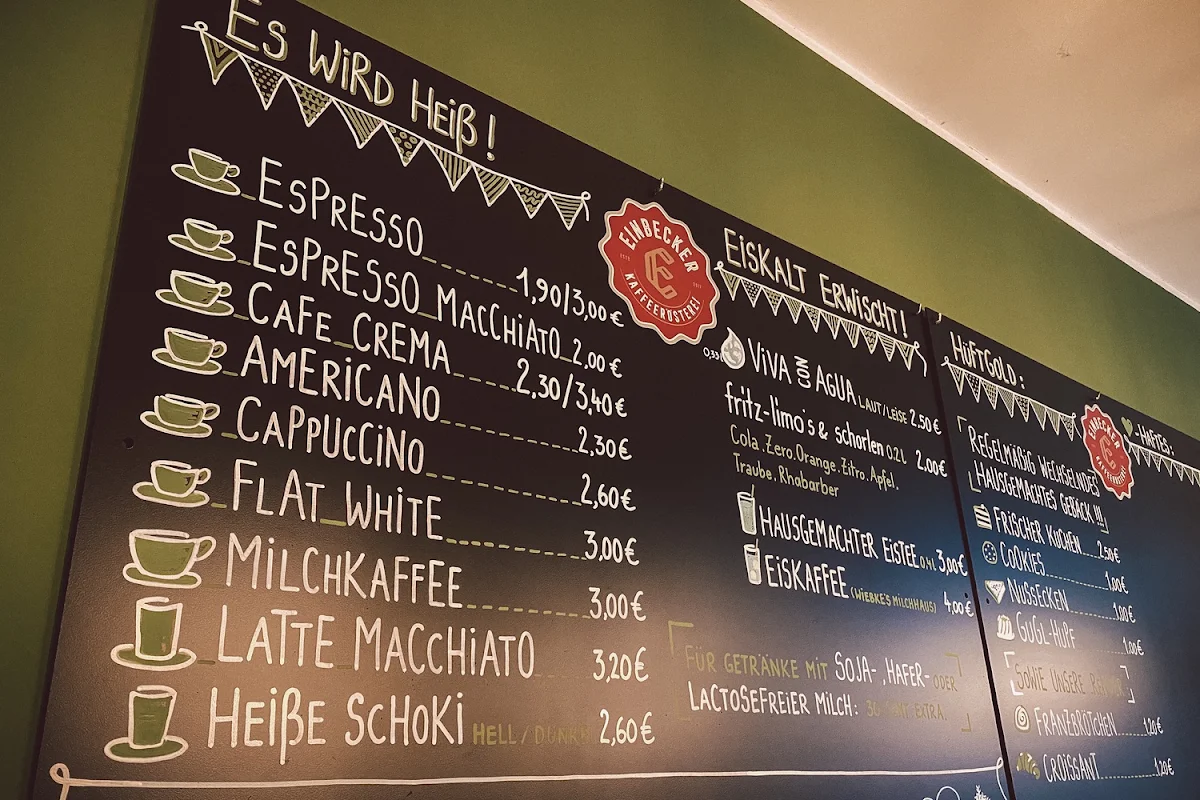 Es wird Heiß!
Espresso 1,90/3,00€
Espresso Macchiato 2,00€
Cafe Crema 2,30/3,40€
Americano 2,30€
Cappuccino 2,60€
Flat White 3,00€
Milchkaffee 3,00€
Latte Macchiato 3,20€
Heiße Schoki Hell/Dunkel 2,60€
EINBECKER
KAFFEERÖSTEREI
Eiskalt erwischt!
0,33l Viva con Agua laut/leise 2.50€
fritz-limo's & schorlen 0.2l 2,00€
Cola.Zero.Orange.Zitro.Apfel.
Traube.Rhabarber
Hausgemachter Eistee 0.4l 3,00€
Eiskaffee (Wiebke's Milchhaus) 4,00€
Für Getränke mit Soja-, Hafer- oder
lactosefreier Milch: 30 Cent extra.
Hüftgold:
Regelmäßig wechselndes
hausgemachtes Gebäck!!!
Frischer Kuchen 2.50€
Cookies 1,00€
Nussecken 1,00€
Gugl-Hupf 1,00€
Sowie unsere
Franzbrötchen 1,20€
Croissant 1,20€
EINBECKER
-haftes: